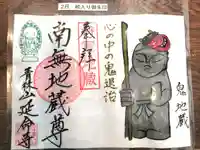 2月 絵入り御朱印
心の中の鬼退治
奉拝
南無地蔵尊
延命寺
鬼地蔵